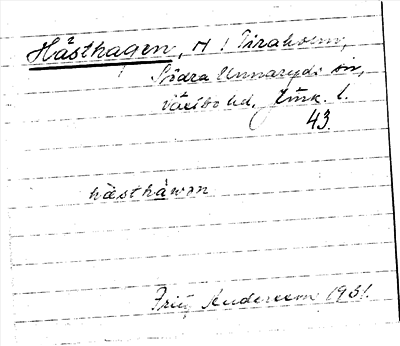 Hästhagen, N ! Tiraholm,
Södra Unnaryds sn,
Västbo hd, Jönk. l.
43.
hàsthàwan
Fritz Andersson 1931.